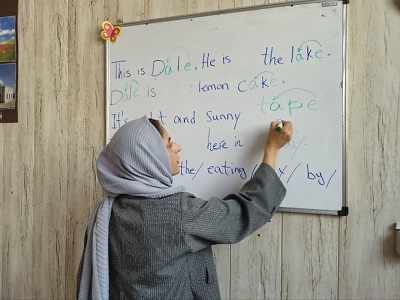 This is Dale. He is the lake.
Dale is lemon cake.
tape
It's and sunny
here in
the/ eating / by/